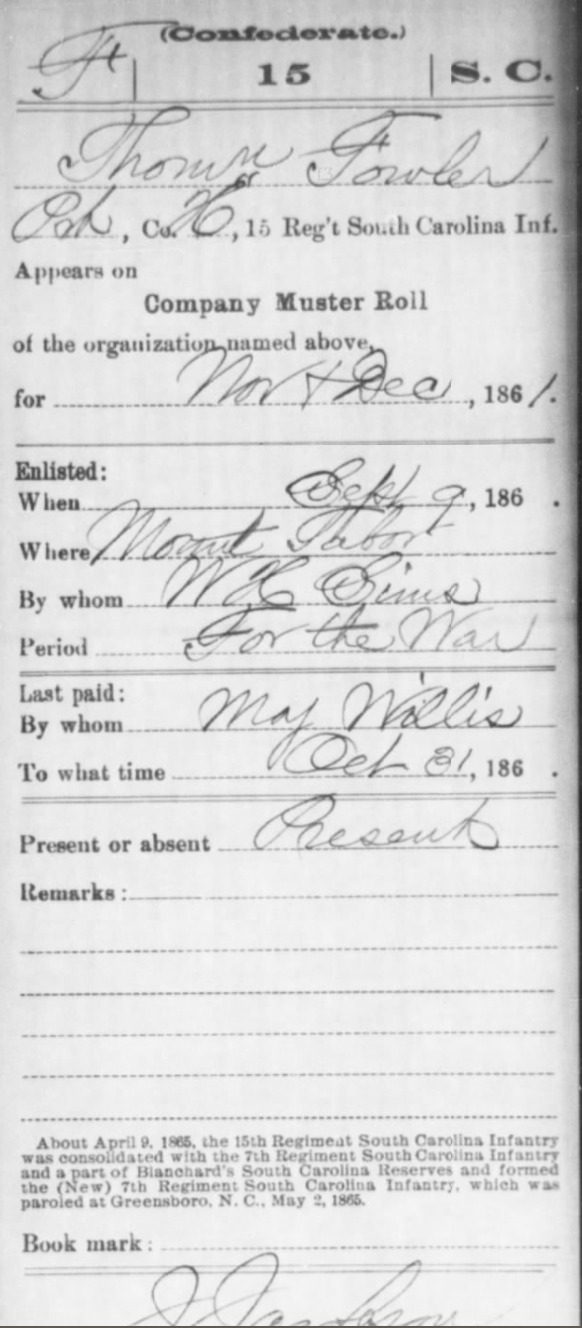 (Confederate.)
F | 15 | S. C.
Fowler
Co. H, 15 Reg't South Carolina Inf.
Appears on
Company Muster Roll
of the organization named above,
for Nov & Dec, 1861.
Enlisted:
When Sept 9, 186 .
Where Mount Tabor
By whom W H Sims
Period For the War
Last paid:
By whom Maj Willis
To what time Oct 31, 186 .
Present or absent Present
Remarks:
About April 9, 1865, the 15th Regiment South Carolina Infantry
was consolidated with the 7th Regiment South Carolina Infantry
and a part of Blanchard's South Carolina Reserves and formed
the (New) 7th Regiment South Carolina Infantry, which was
paroled at Greensboro, N. C., May 2, 1865.
Book mark: